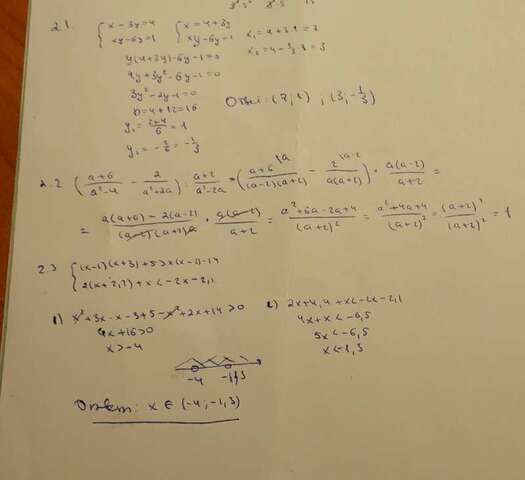 2.1. { x - 3y = 4 { x = 4 + 3y
xy - 6y = 1 xy - 6y = 1
x₁ = 4 + 3·1 = 7
x₂ = 4 - ⅓·3 = 3
y(4 + 3y) - 6y - 1 = 0
4y + 3y² - 6y - 1 = 0
3y² - 2y - 1 = 0
D = 4 + 12 = 16
y₁ = (2+4)/6 = 1
y₂ = -2/6 = -1/3
Ответ: (7, 1), (3, -1/3)
2.2 ((a+6)/(a²-4) - 2/(a²+2a)) : (a+2)/(a²-2a) = ((a+6)\a/((a-2)(a+2)) - 2\a-2/(a(a+2))) · a(a-2)/(a+2) =
= (a(a+6) - 2(a-2))/((a-2)(a+2)a) · a(a-2)/(a+2) = (a²+6a-2a+4)/(a+2)² = (a²+4a+4)/(a+2)² = (a+2)²/(a+2)² = 1
2.3 { (x-1)(x+3)+5 > x(x-2)-14
2(x+2,2)+x < -2x-2,1
1) x²+3x-x-3+5-x²+2x+14 > 0
4x+16>0
x > -4
2) 2x+4,4+x < -2x-2,1
4x+x < -6,5
5x < -6,5
x < -1,3
-4 -1,3
Ответ: x ∈ (-4; -1,3)